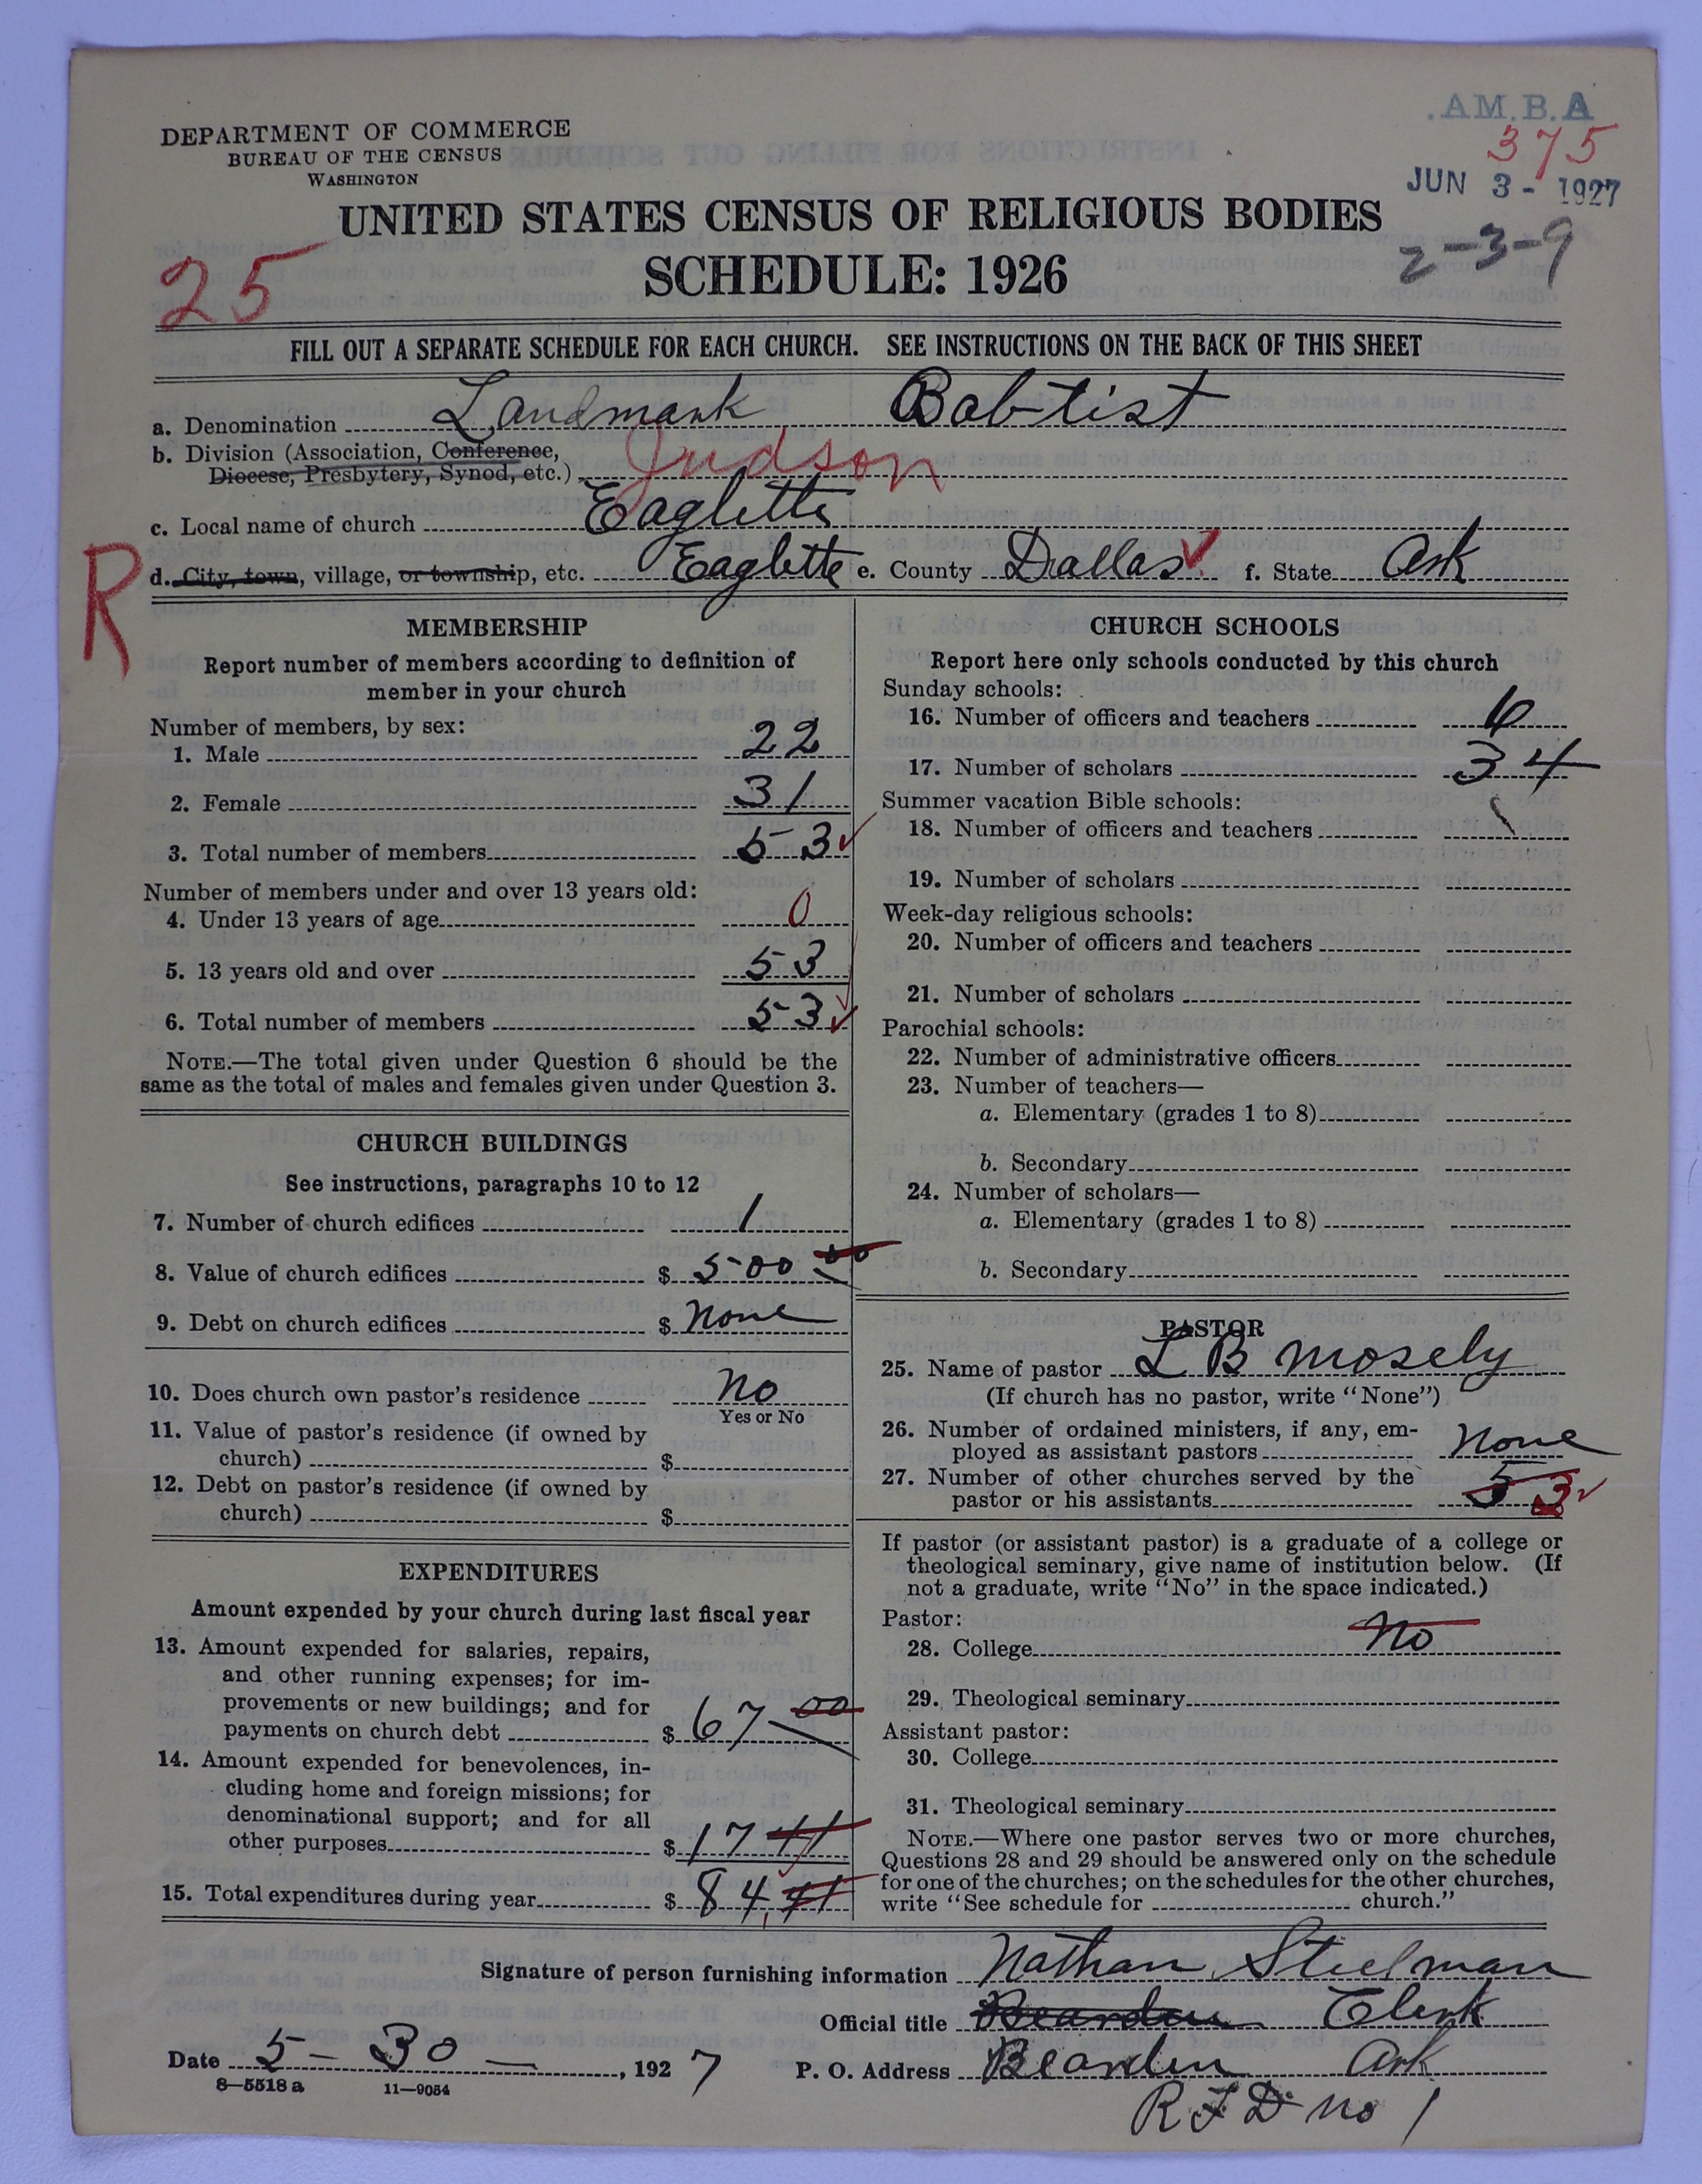 .AM.B.A
DEPARTMENT OF COMMERCE
BUREAU OF THE CENSUS
WASHINGTON
375
JUN 3 - 1927
UNITED STATES CENSUS OF RELIGIOUS BODIES
2-3-9
25
SCHEDULE: 1926
FILL OUT A SEPARATE SCHEDULE FOR EACH CHURCH. SEE INSTRUCTIONS ON THE BACK OF THIS SHEET
a. Denomination Landmark Babtist
b. Division (Association, Conference,
Diocese, Presbytery, Synod, etc.) Judson
c. Local name of church Eaglette
R
d. City, town, village, or township, etc. Eaglette e. County Dallas f. State Ark
MEMBERSHIP
Report number of members according to definition of
member in your church
Number of members, by sex:
1. Male 22
2. Female 31
3. Total number of members 53
Number of members under and over 13 years old:
4. Under 13 years of age 0
5. 13 years old and over 53
6. Total number of members 53
NOTE.—The total given under Question 6 should be the
same as the total of males and females given under Question 3.
CHURCH BUILDINGS
See instructions, paragraphs 10 to 12
7. Number of church edifices 1
8. Value of church edifices $ 500 00
9. Debt on church edifices $ None
10. Does church own pastor's residence No
Yes or No
11. Value of pastor's residence (if owned by
church) $
12. Debt on pastor's residence (if owned by
church) $
EXPENDITURES
Amount expended by your church during last fiscal year
13. Amount expended for salaries, repairs,
and other running expenses; for im-
provements or new buildings; and for
payments on church debt $ 67 00
14. Amount expended for benevolences, in-
cluding home and foreign missions; for
denominational support; and for all
other purposes $ 17 41
15. Total expenditures during year $ 84.41
CHURCH SCHOOLS
Report here only schools conducted by this church
Sunday schools:
16. Number of officers and teachers 6
17. Number of scholars 34
Summer vacation Bible schools:
18. Number of officers and teachers
19. Number of scholars
Week-day religious schools:
20. Number of officers and teachers
21. Number of scholars
Parochial schools:
22. Number of administrative officers
23. Number of teachers—
a. Elementary (grades 1 to 8)
b. Secondary
24. Number of scholars—
a. Elementary (grades 1 to 8)
b. Secondary
PASTOR
25. Name of pastor L B Mosely
(If church has no pastor, write "None")
26. Number of ordained ministers, if any, em-
ployed as assistant pastors None
27. Number of other churches served by the
pastor or his assistants 5 3
If pastor (or assistant pastor) is a graduate of a college or
theological seminary, give name of institution below. (If
not a graduate, write "No" in the space indicated.)
Pastor:
28. College No
29. Theological seminary
Assistant pastor:
30. College
31. Theological seminary
NOTE.—Where one pastor serves two or more churches,
Questions 28 and 29 should be answered only on the schedule
for one of the churches; on the schedules for the other churches,
write "See schedule for church."
Signature of person furnishing information Nathan Steelman
Official title Bearden Clerk
Date 5-30-, 1927 P. O. Address Bearden Ark
8-5518 a 11-9054
R F D No 1